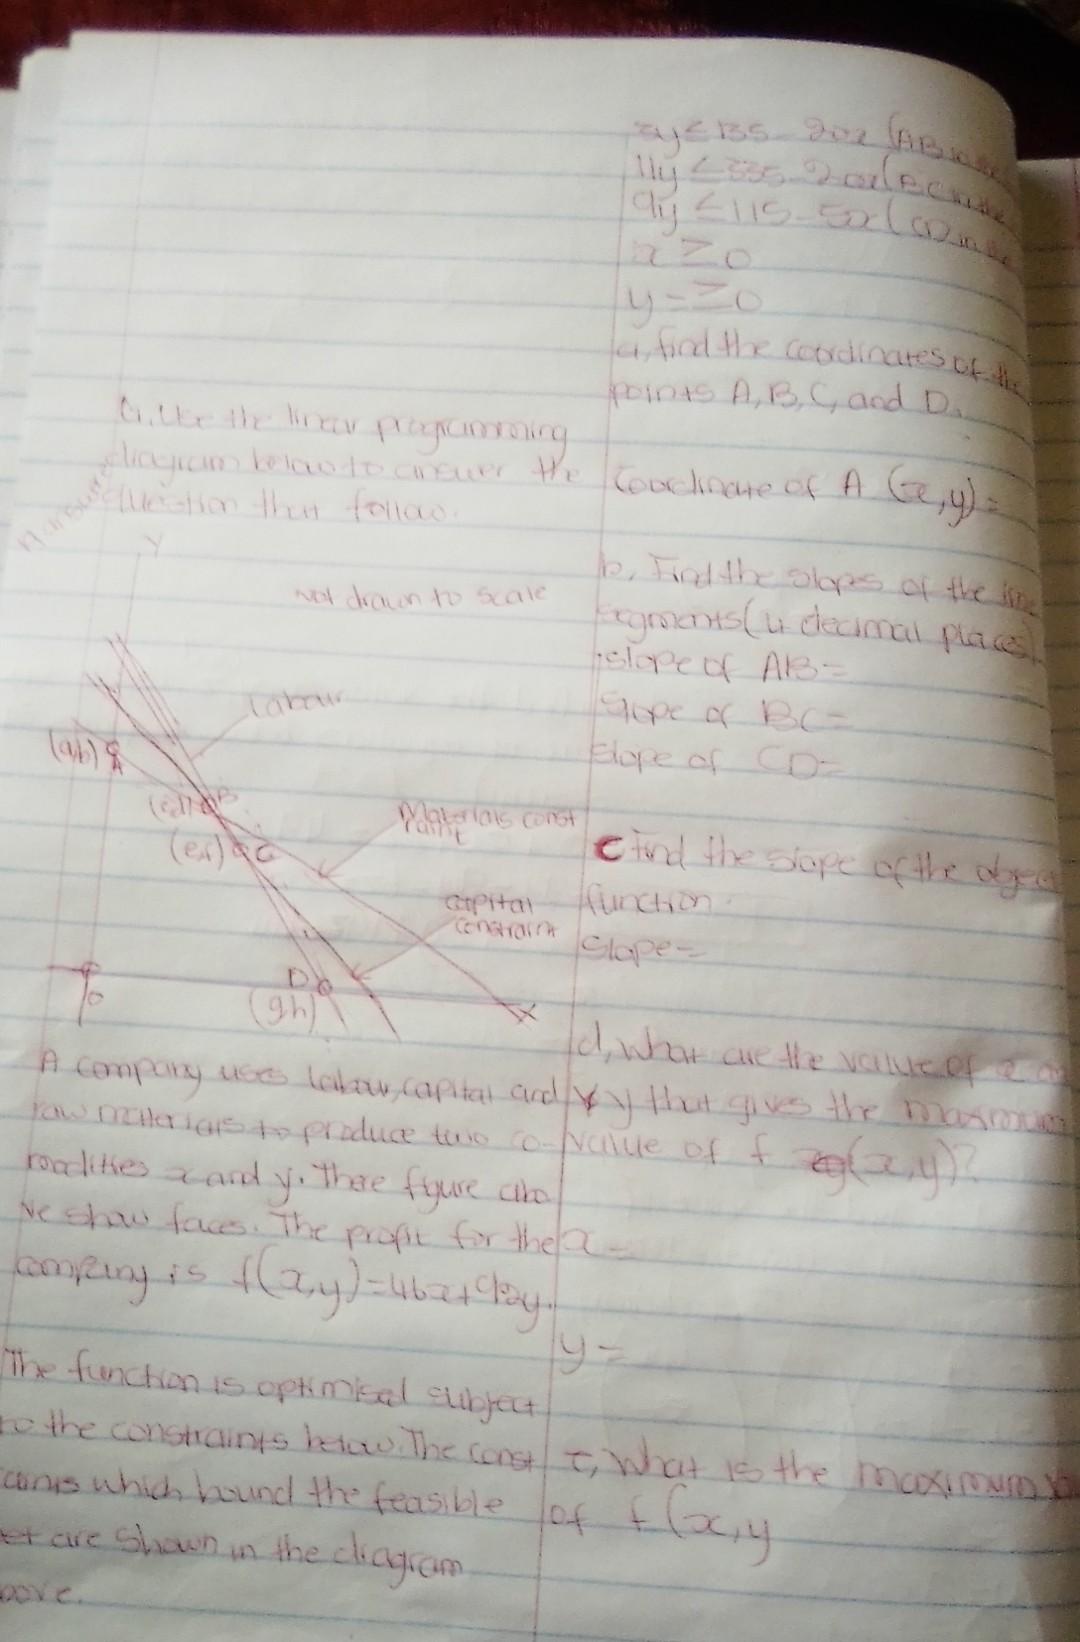 G, Use the linear programming
diagram below to answer the
question that follow.
Y
Not drawn to scale
Labour
(a,b)
A
(c,d) B
(e,f) C
Materials const
raint
capital
constraint
D
(g,h)
X
O
A company uses labour, capital and
raw materials to produce two co-
modities x and y. There figure abo
ve show faces. The profit for the
company is f(x,y)=46x+92y.
The function is optimised subject
to the constraints below. The const
raints which bound the feasible
set are shown in the diagram
bove.
≤ 135 - 20x (AB in the
11y ≤ 335 - 20x (BC in the
9y ≤ 115 - 5x (CD in the
x ≥ 0
y = ≥ 0
a, find the coordinates of the
points A, B, C, and D.
Coordinate of A (x,y) =
b, Find the slopes of the line
segments (4 decimal places)
slope of AB =
Slope of BC =
Slope of CD =
C Find the slope of the object
function.
Slope =
d, What are the value of x
y that gives the maximum
value of f (x,y)?
x =
y =
What is the maximum
of f (x,y